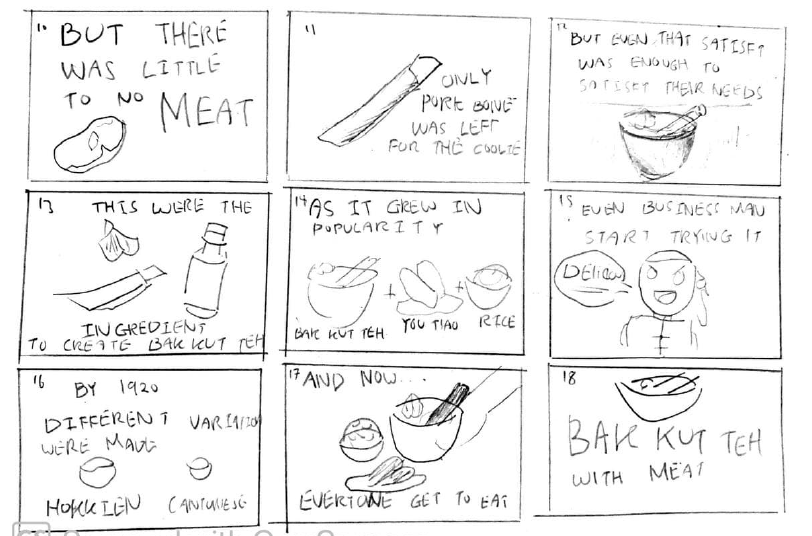 10
BUT THERE
WAS LITTLE
TO NO MEAT
11
ONLY
PORK BONE
WAS LEFT
FOR THE COOLIE
12
BUT EVEN THAT SATISFY
WAS ENOUGH TO
SATISFY THEIR NEEDS
13
THIS WERE THE
INGREDIENT
TO CREATE BAK KUT TEH
14
AS IT GREW IN
POPULARITY
+ +
BAK KUT TEH YOU TIAO RICE
15
EVEN BUSINESS MAN
START TRYING IT
16
BY 1920
DIFFERENT VARIATION
WERE MADE
HOKKIEN CANTONESE
17
AND NOW...
EVERYONE GET TO EAT
18
BAK KUT TEH
WITH MEAT